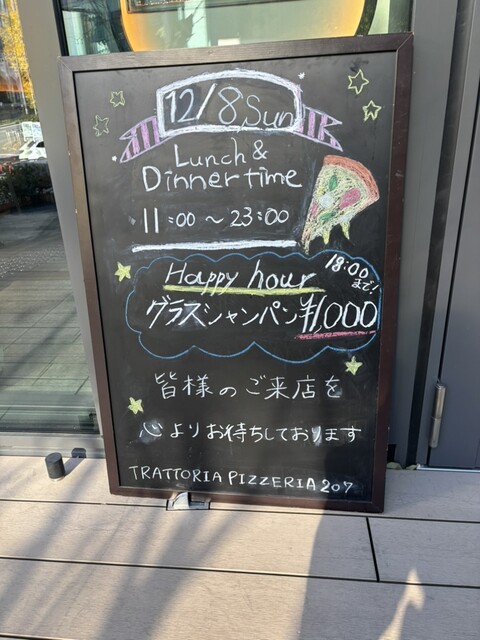 12/8.Sun
Lunch &
Dinner time
11:00～23:00
Happy hour 18:00まで!
グラスシャンパン¥1,000
皆様のご来店を
心よりお待ちしております
TRATTORIA PIZZERIA 207